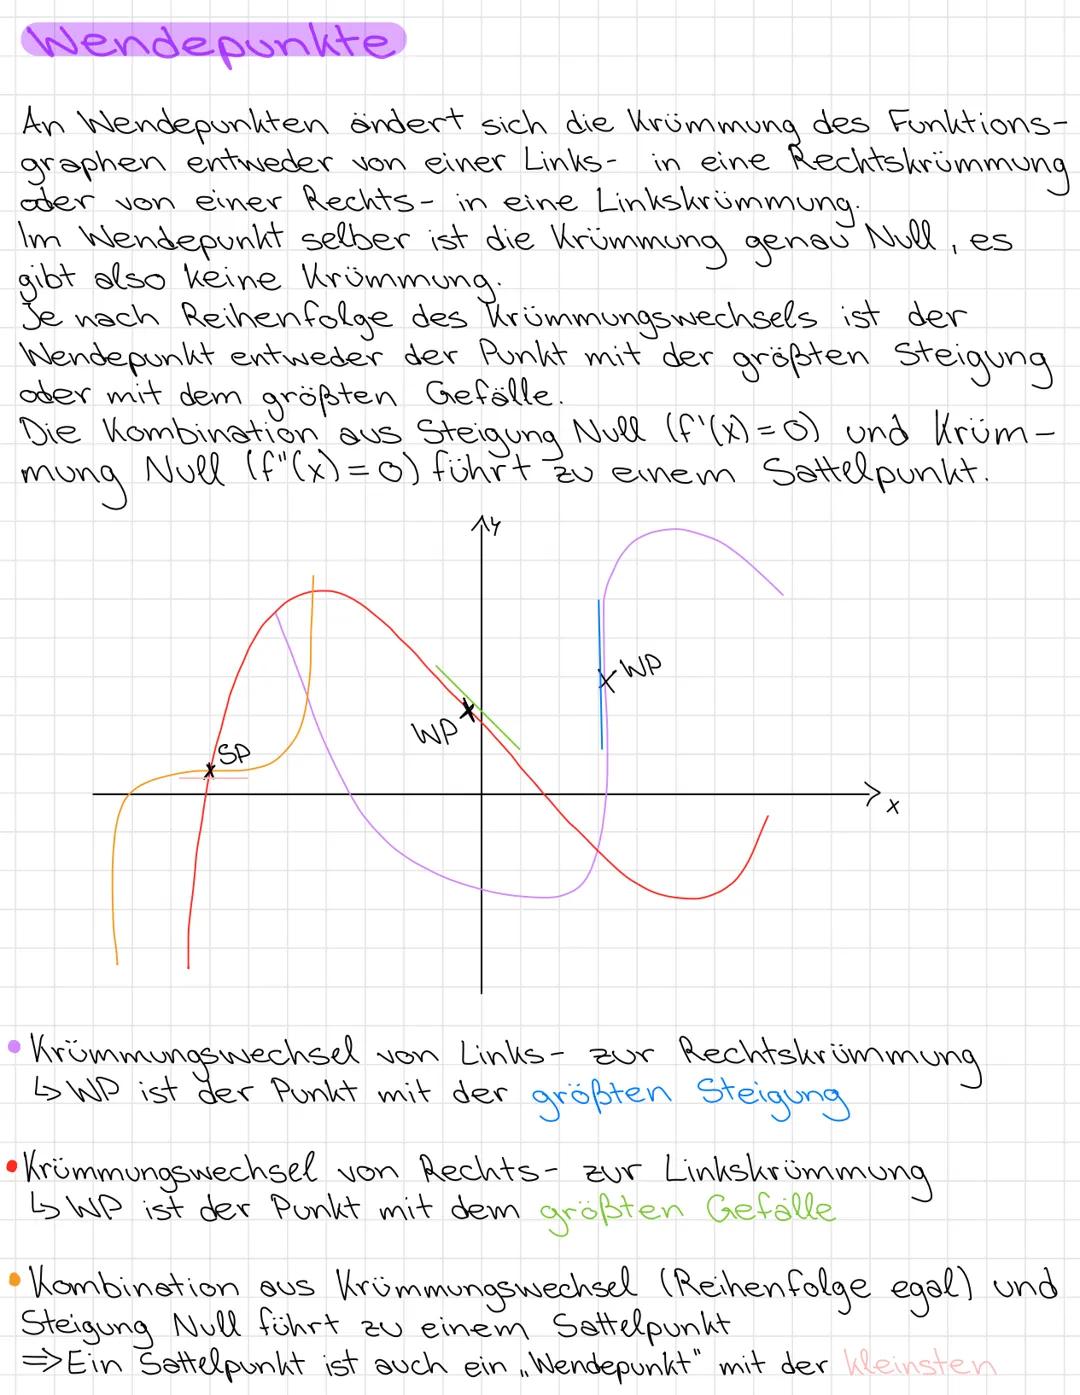 Wendepunkte
An Wendepunkten ändert sich die Krümmung des Funktions-
graphen entweder von einer Links- in eine Rechtskrümmung
oder von einer Rechts- in eine Linkskrümmung.
Im Wendepunkt selber ist die Krümmung genau Null, es
gibt also keine Krümmung.
Je nach Reihenfolge des Krümmungswechsels ist der
Wendepunkt entweder der Punkt mit der größten Steigung
oder mit dem größten Gefälle.
Die Kombination aus Steigung Null (f'(x)=0) und Krüm-
mung Null (f"(x)=0) führt zu einem Sattelpunkt.
y
WP
SP
WP
x
• Krümmungswechsel von Links- zur Rechtskrümmung
↳ WP ist der Punkt mit der größten Steigung
• Krümmungswechsel von Rechts- zur Linkskrümmung
↳ WP ist der Punkt mit dem größten Gefälle
• Kombination aus Krümmungswechsel (Reihenfolge egal) und
Steigung Null führt zu einem Sattelpunkt
⇒ Ein Sattelpunkt ist auch ein „Wendepunkt" mit der kleinsten